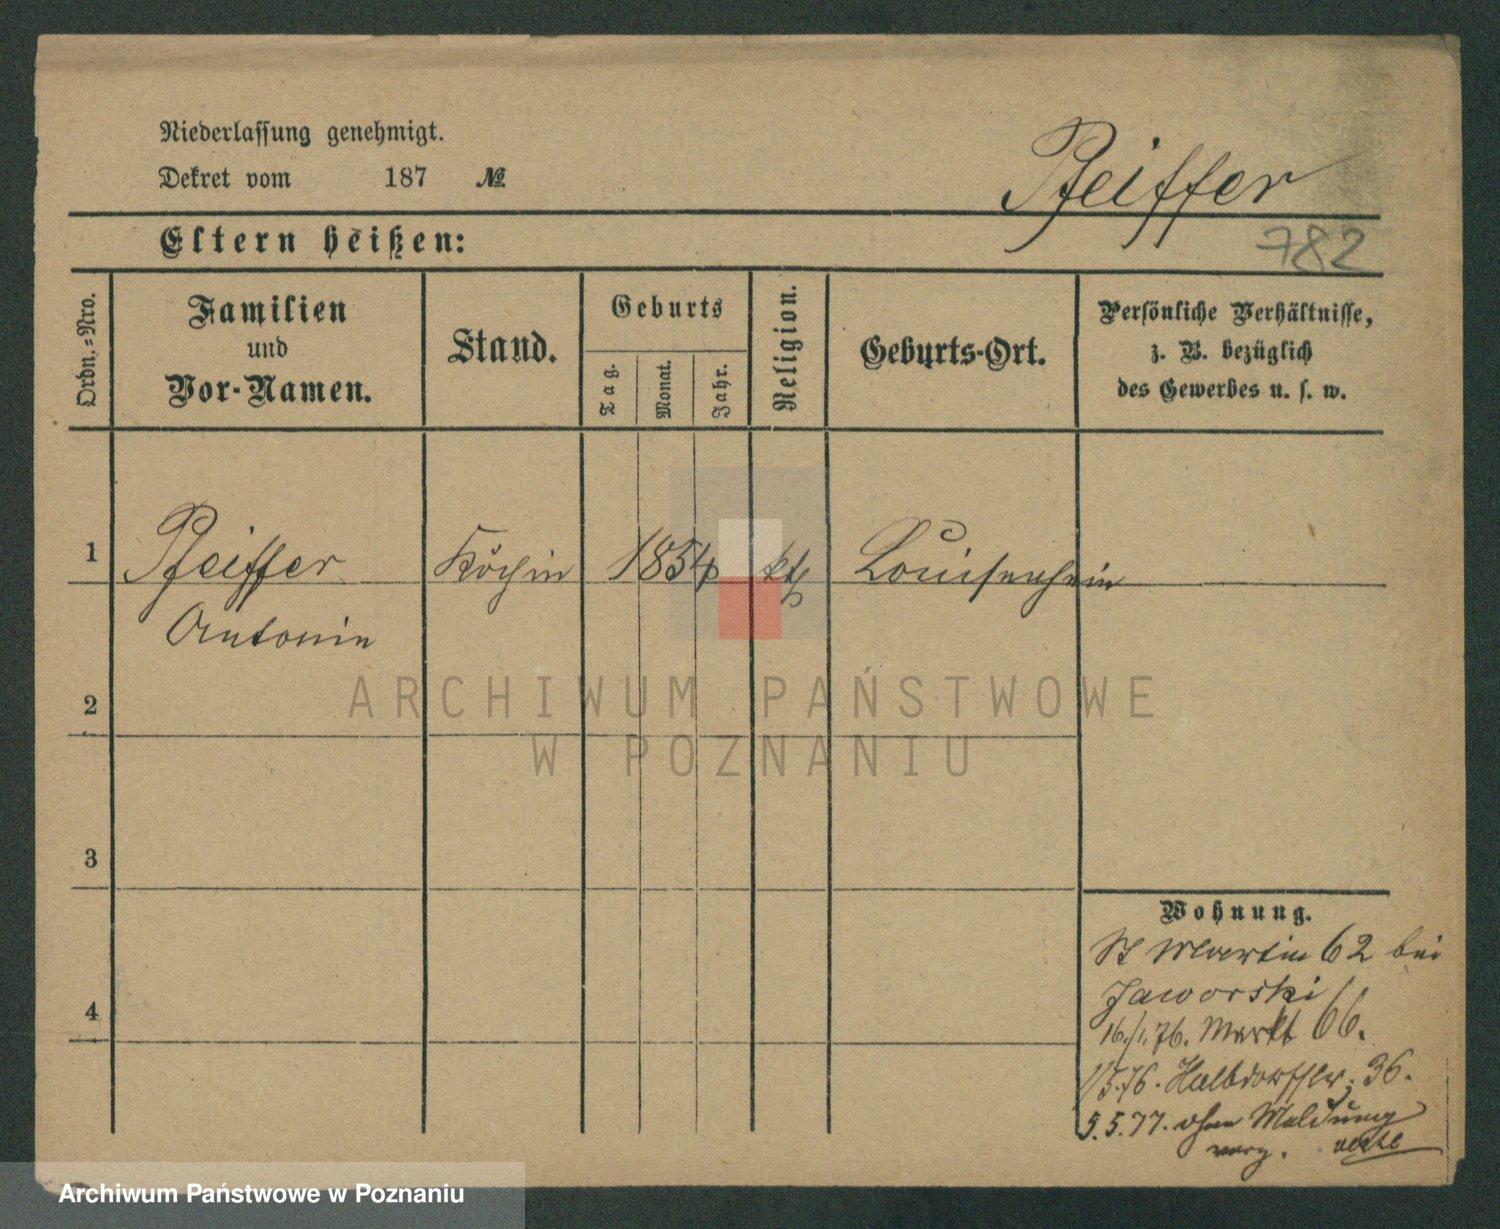 Niederlassung genehmigt.
Dekret vom 187 №
Pfeiffer
782
Eltern heißen:
Ordn.=Nro.
Familien
und
Vor-Namen.
Stand.
Geburts
Tag.
Monat.
Jahr.
Religion.
Geburts-Ort.
Persönliche Verhältnisse,
z. B. bezüglich
des Gewerbes u. s. w.
1 Pfeiffer Köchin 1854 kth Louisenhein
Antonin
2
3
4
Wohnung.
St Martin 62 bei
Jaworski
16./1.76. Markt 66.
1/5.76. Halbdorfstr. 36.
5.5.77. ohne Meldung
verz.
ARCHIWUM PAŃSTWOWE
W POZNANIU
Archiwum Państwowe w Poznaniu